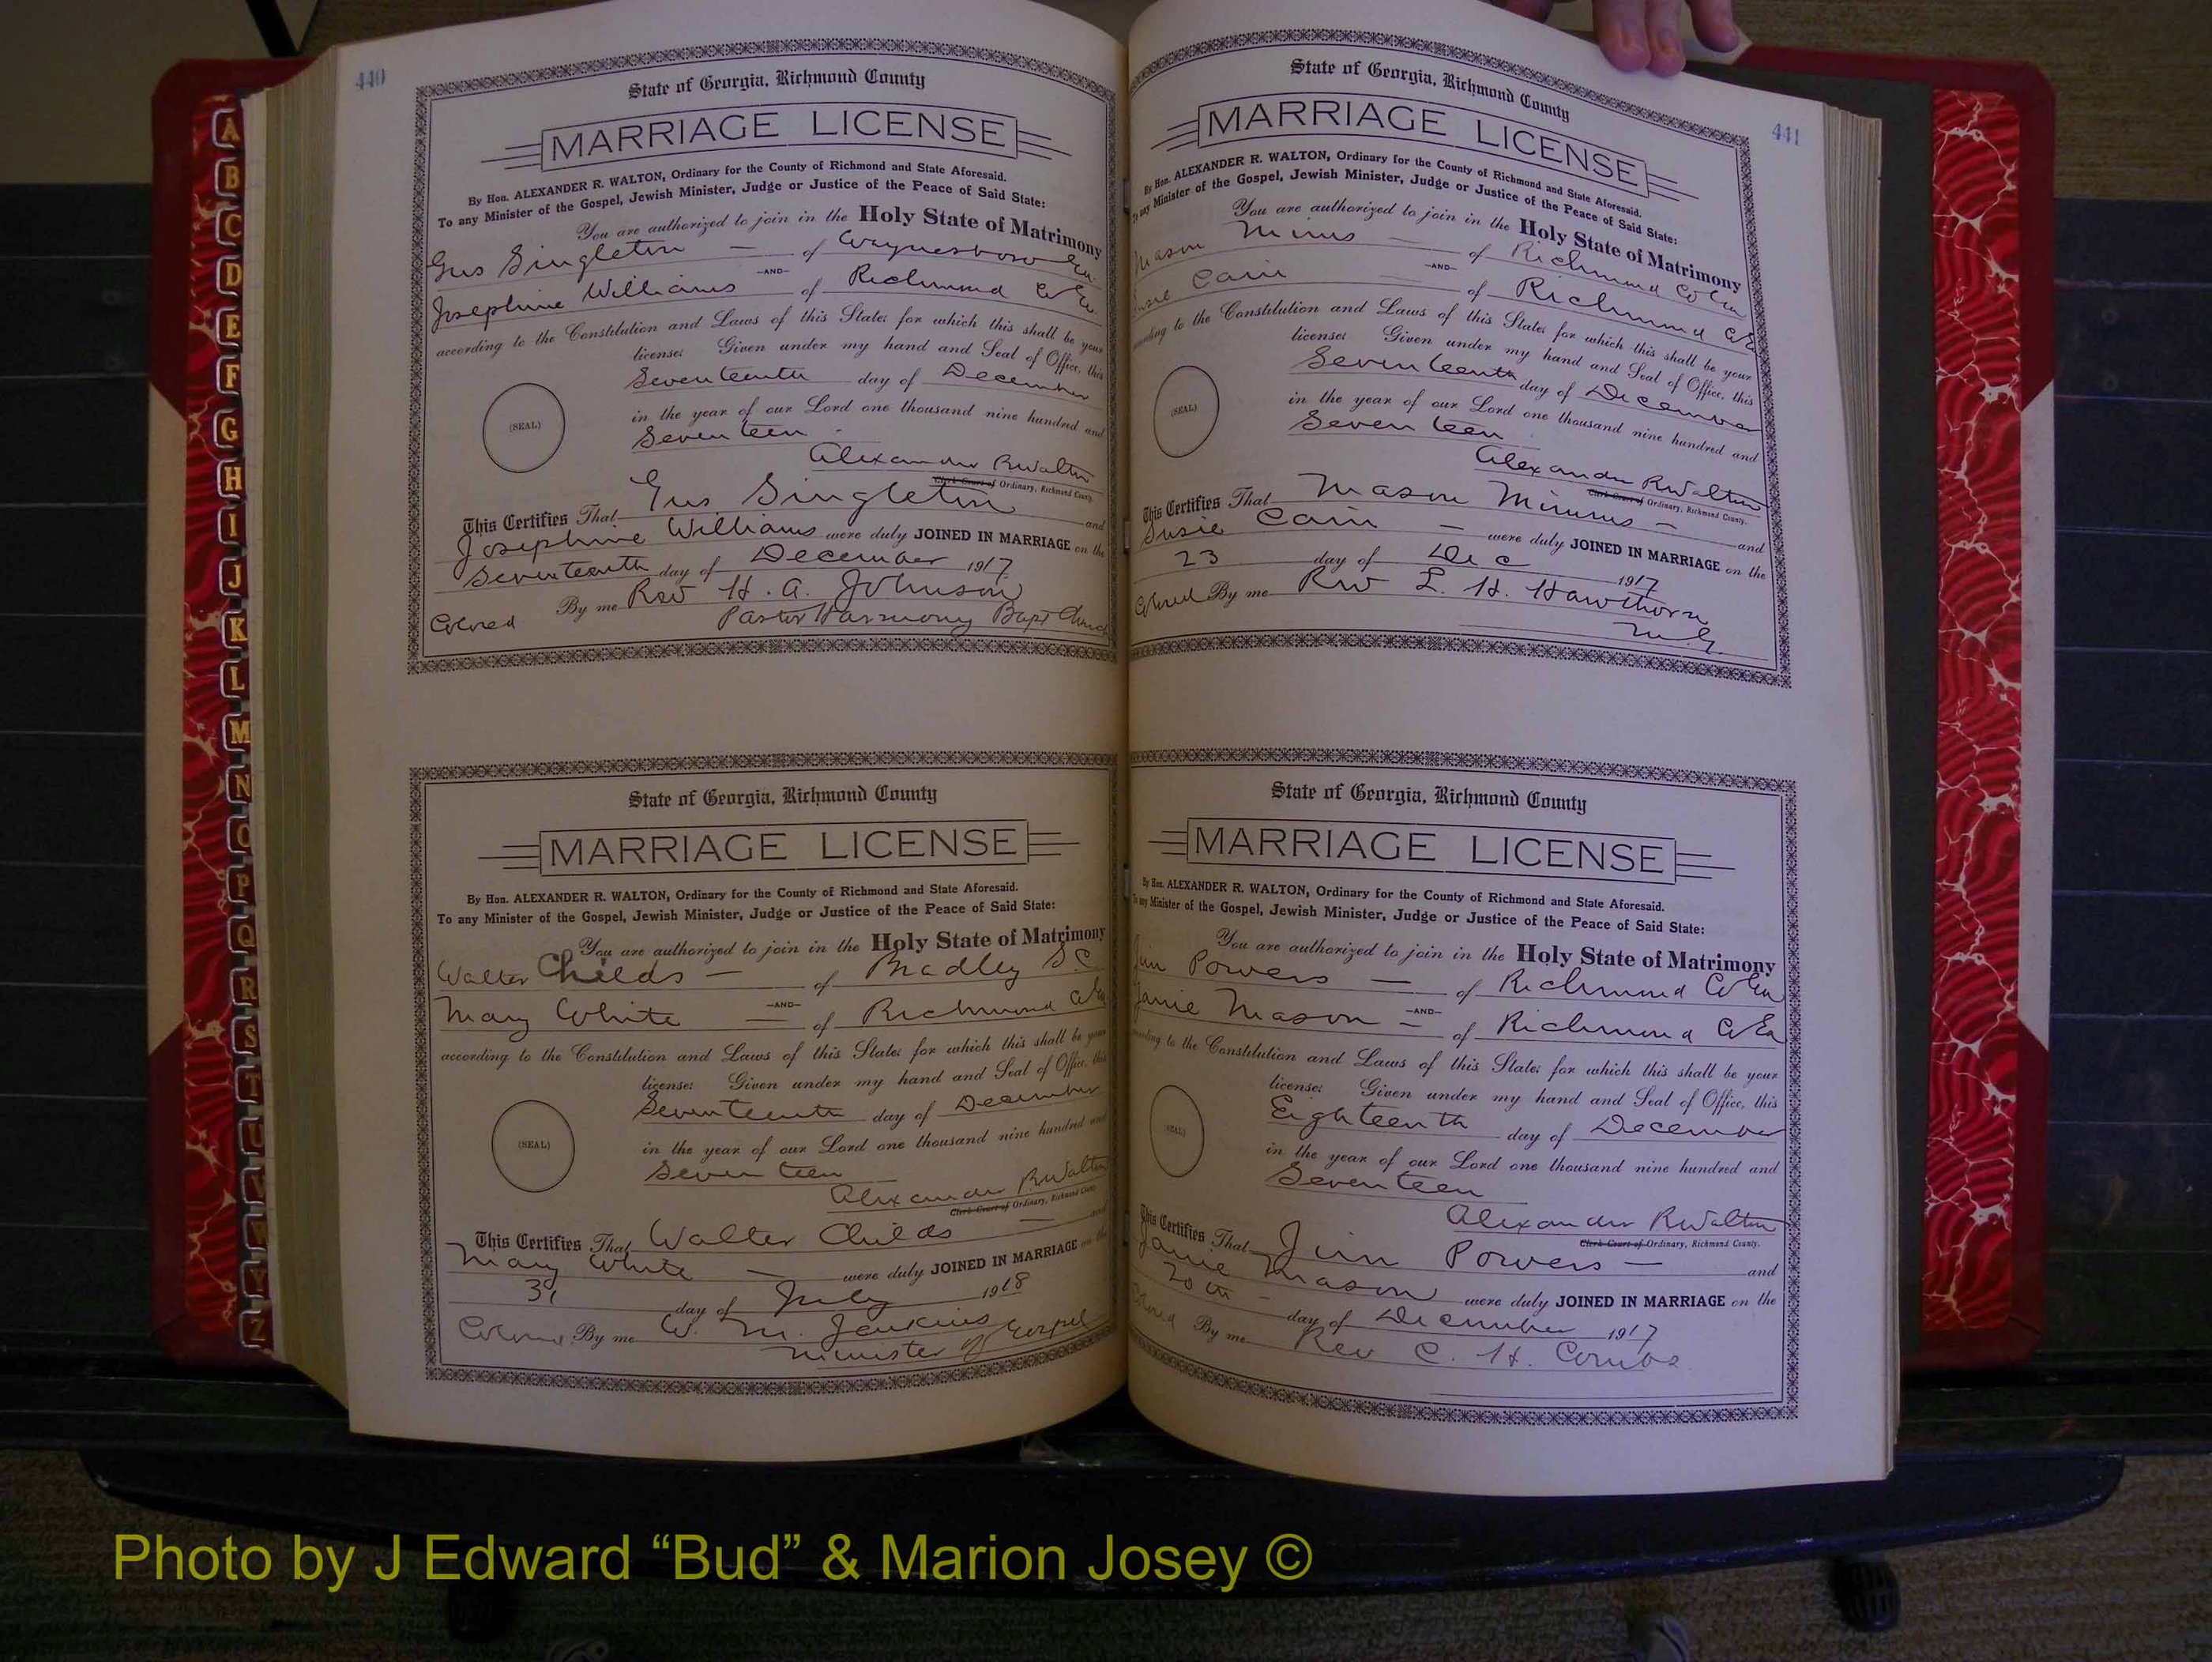 440
State of Georgia, Richmond County
MARRIAGE LICENSE
By Hon. ALEXANDER R. WALTON, Ordinary for the County of Richmond and State Aforesaid.
To any Minister of the Gospel, Jewish Minister, Judge or Justice of the Peace of Said State:
You are authorized to join in the Holy State of Matrimony
Gus Singleton — of Waynesboro Ga.
—AND—
Josephine Williams of Richmond Co Ga.
according to the Constitution and Laws of this State; for which this shall be your
license: Given under my hand and Seal of Office, this
Seventeenth day of December
in the year of our Lord one thousand nine hundred and
Seventeen
(SEAL)
Alexander R Walton
Clerk Court of Ordinary, Richmond County.
This Certifies That Gus Singleton and
Josephine Williams were duly JOINED IN MARRIAGE on the
Seventeenth day of December 1917
By me Rev H. A. Johnson
Colored Pastor Harmony Bapt Church
State of Georgia, Richmond County
MARRIAGE LICENSE
By Hon. ALEXANDER R. WALTON, Ordinary for the County of Richmond and State Aforesaid.
To any Minister of the Gospel, Jewish Minister, Judge or Justice of the Peace of Said State:
You are authorized to join in the Holy State of Matrimony
Walter Childs — of Bradley S.C.
—AND—
Mary White — of Richmond Co Ga
according to the Constitution and Laws of this State; for which this shall be your
license: Given under my hand and Seal of Office, this
Seventeenth day of December
in the year of our Lord one thousand nine hundred and
Seventeen
(SEAL)
Alexander R Walton
Clerk Court of Ordinary, Richmond County
This Certifies That Walter Childs — and
Mary White — were duly JOINED IN MARRIAGE on the
31 day of July 1918
Colored By me W. M. Jenkins
Minister of Gospel
441
State of Georgia, Richmond County
MARRIAGE LICENSE
By Hon. ALEXANDER R. WALTON, Ordinary for the County of Richmond and State Aforesaid.
To any Minister of the Gospel, Jewish Minister, Judge or Justice of the Peace of Said State:
You are authorized to join in the Holy State of Matrimony
Mason Mimms — of Richmond Co Ga
—AND—
Susie Cain of Richmond Co Ga
according to the Constitution and Laws of this State; for which this shall be your
license: Given under my hand and Seal of Office, this
Seventeenth day of December
in the year of our Lord one thousand nine hundred and
Seventeen
(SEAL)
Alexander R Walton
Clerk Court of Ordinary, Richmond County.
This Certifies That Mason Mimms — and
Susie Cain — were duly JOINED IN MARRIAGE on the
23 day of Dec 1917
Colored By me Rev L. H. Hawthorn
M.G.
State of Georgia, Richmond County
MARRIAGE LICENSE
By Hon. ALEXANDER R. WALTON, Ordinary for the County of Richmond and State Aforesaid.
To any Minister of the Gospel, Jewish Minister, Judge or Justice of the Peace of Said State:
You are authorized to join in the Holy State of Matrimony
Jim Powers — of Richmond Co Ga
—AND—
Janie Mason — of Richmond Co Ga
according to the Constitution and Laws of this State; for which this shall be your
license: Given under my hand and Seal of Office, this
Eighteenth day of December
in the year of our Lord one thousand nine hundred and
Seventeen
(SEAL)
Alexander R Walton
Clerk Court of Ordinary, Richmond County.
This Certifies That Jim Powers — and
Janie Mason were duly JOINED IN MARRIAGE on the
20th day of December 1917
Colored By me Rev C. H. Combs
A
B
C
D
E
F
G
H
I
J
K
L
M
N
O
P
Q
R
S
T
U
V
W
Y
Z
Photo by J Edward “Bud” & Marion Josey ©